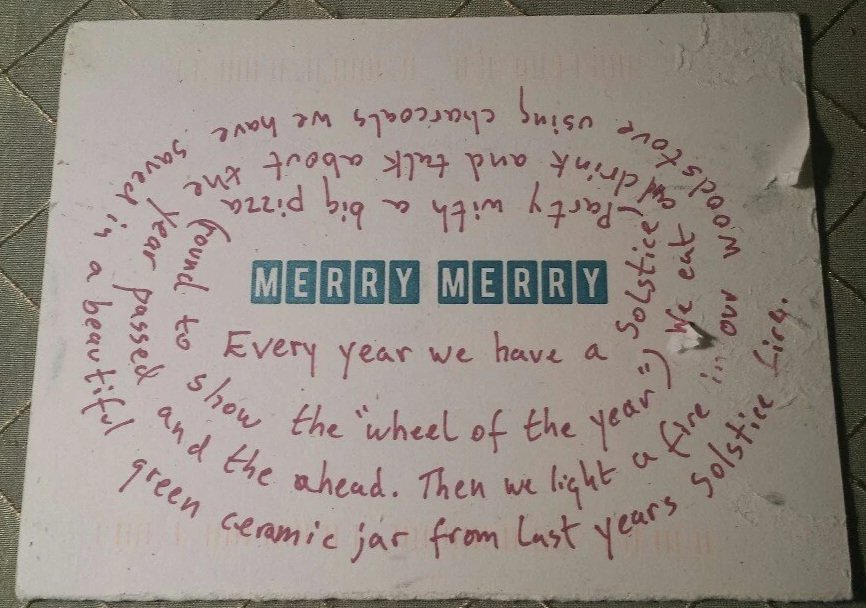 MERRY MERRY
Every year we have a Solstice
Party with a big pizza
(round to show the "wheel of the year")
We eat and drink and talk about the
year passed and the ahead. Then we light a fire in our woodstove
using charcoals we have saved in a beautiful
green ceramic jar from last years Solstice fire.